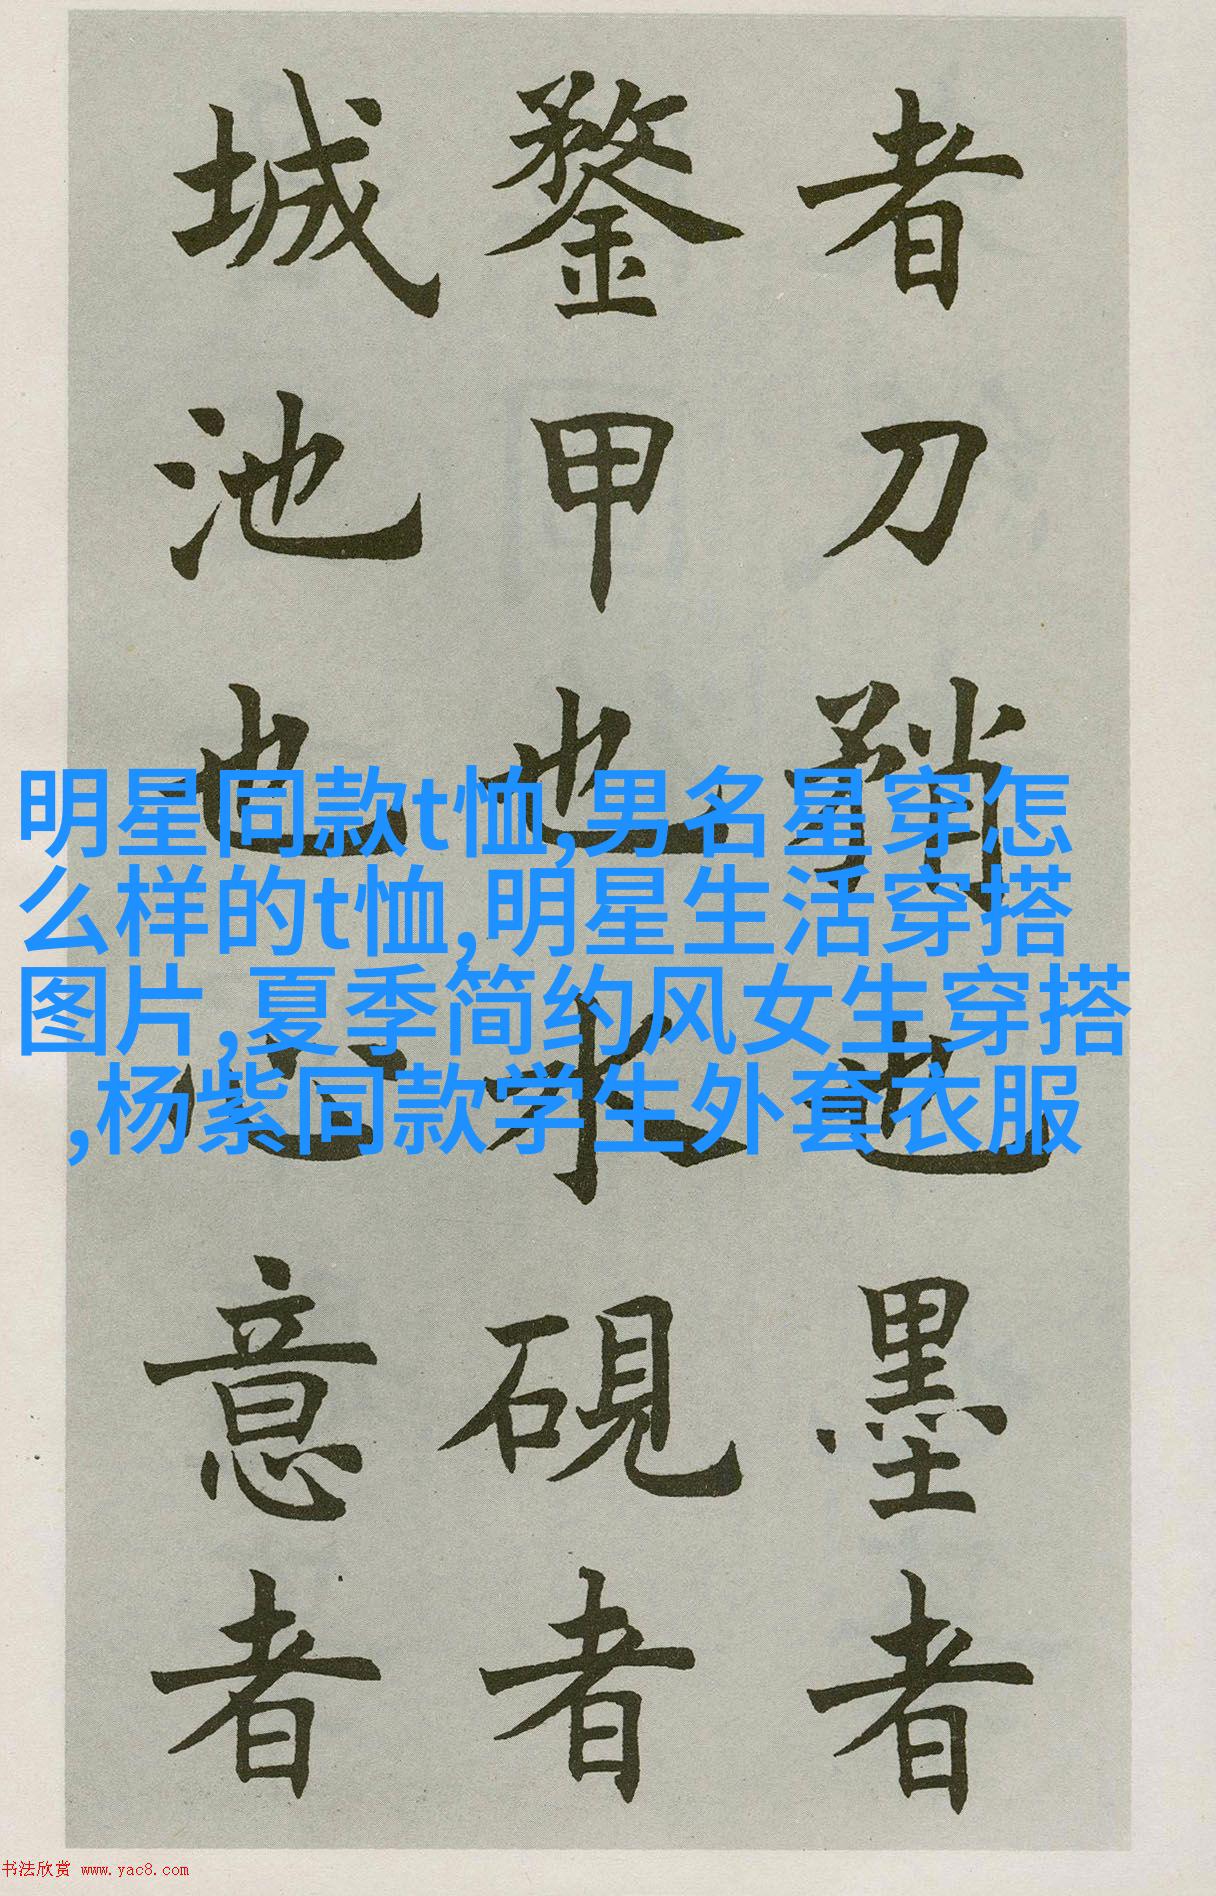 者刀矟也墨者
鍪甲也水硯者
城池也心意者
明星同款t恤,男名星穿怎
么样的t恤,明星生活穿搭
图片,夏季简约风女生穿搭
,杨紫同款学生外套衣服
书法欣赏 www.yac8.com